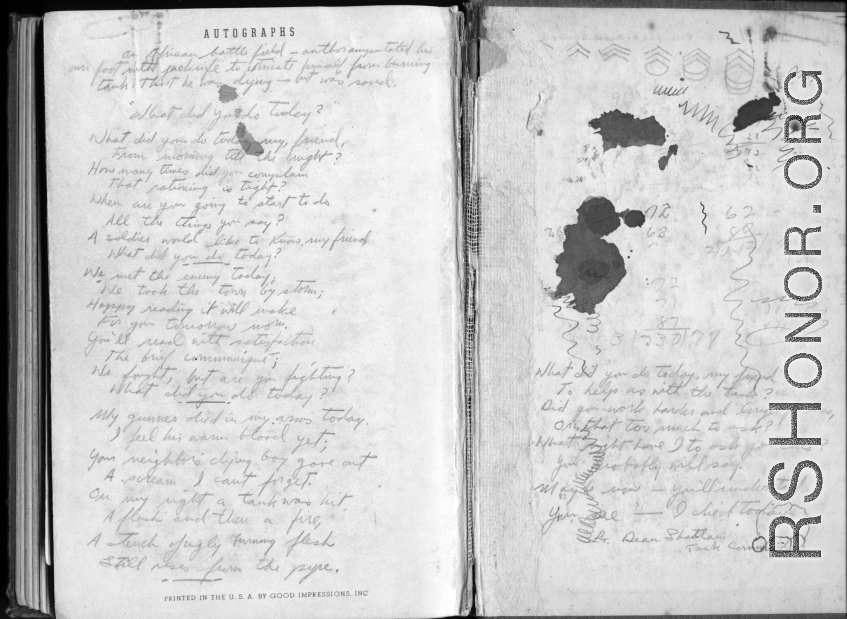 AUTOGRAPHS
On African battle field - author amputated his
own foot with jacknife to extricate himself from burning
tank. Thot he was dying - but was saved.
"What did you do today?"
What did you do today, my, friend,
From morning till the night?
How many times did you complain
That rationing is tight?
When are you going to start to do
All the things you say?
A soldier would like to know, my friend
What did you do today?
We met the enemy today,
We took the town by storm;
Happy reading it will make
For you tomorrow morn.
You'll read with satisfaction
The brief communique;
We fought, but are you fighting?
What did you do today?
My gunner died in my arms today.
I feel his warm blood yet;
Your neighbor's dying boy gave out
A scream I cant forget.
On my right a tank was hit,
A flash and then a fire,
A stench of ugly burning flesh
Still rises from the pyre.
PRINTED IN THE U. S. A. BY GOOD IMPRESSIONS, INC
72 62
68
87
3 77
What did you do today, my friend
To help us with the task?
Did you work harder and
Or is that too much to ask?
What right have I to ask
You probably will say.
Maybe now - you'll understand
You see - I died today
Dean Shatlain
Tank
RSHONOR.ORG